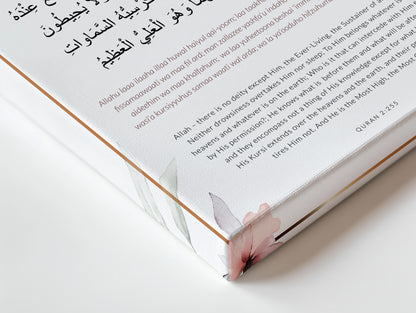 عِندَهُ
لَا يُحِيطُونَ
كُرْسِيُّهُ السَّمَاوَاتِ
وَهُوَ الْعَلِيُّ الْعَظِيمُ
Allahu laaa ilaaha illaa huwal haiyul qai-yoom; laa
fissamaawaati wa maa fil ard; man zallazee yashfa'u indahooo
aideehim wa maa khalfahum; wa laa yuheetoona beshai 'immin
wasi'a kursiyyuhus samaa waati wal arda; wa la ya'ooduho hifzuhumaa
Allah – there is no deity except Him, the Ever-Living, the Sustainer of
Neither drowsiness overtakes Him nor sleep; To Him belongs whatever is
heavens and whatever is on the earth; Who is it that can intercede with
by His permission?; He knows what is before them and what will be
and they encompass not a thing of His knowledge except for what
His Kursi extends over the heavens and the earth, and their
tires Him not. And He is the Most High, the Most
QURAN 2:255